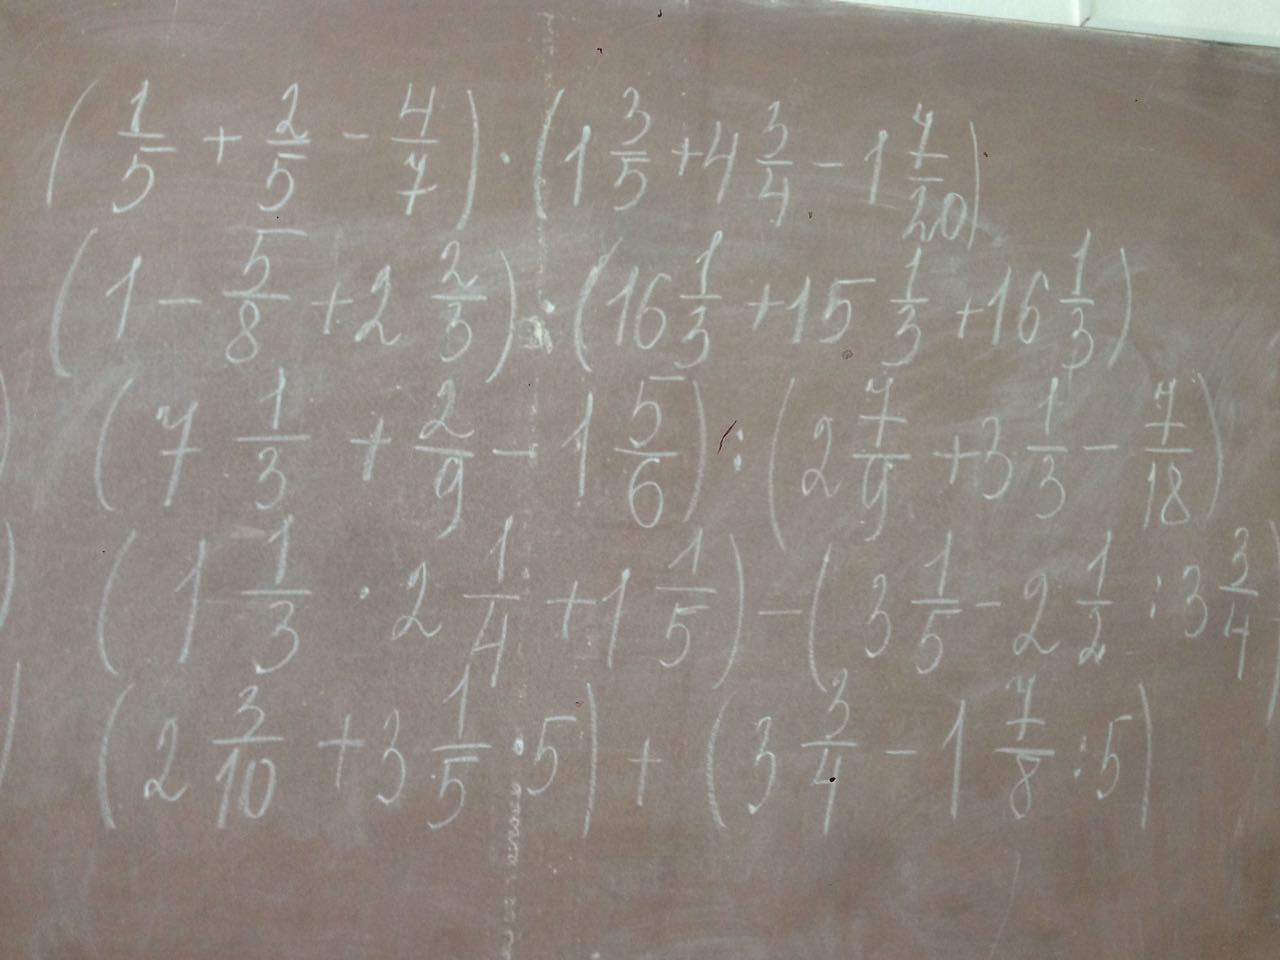 (1/5 + 2/5 - 4/7) · (1 3/5 + 4 3/4 - 1 7/20)
(1 - 5/8 + 2 2/3) · (16 1/3 + 15 1/3 + 16 1/3)
(7 1/3 + 2/9 - 1 5/6) : (2 7/9 + 3 1/3 - 7/18)
(1 1/3 · 2 1/4 + 1 1/5) - (3 1/5 - 2 1/2 : 3 3/4)
(2 3/10 + 3 1/5 · 5) + (3 3/4 - 1 7/8 : 5)